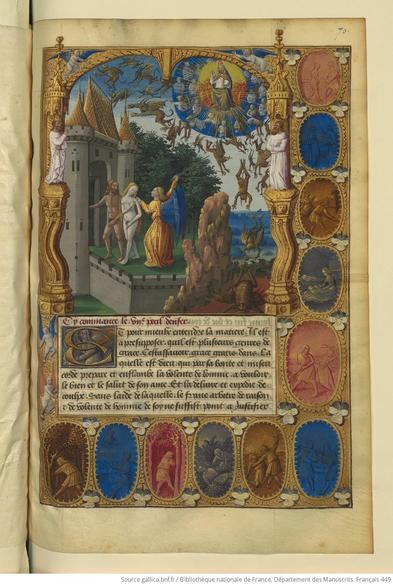 70.
Cy commance le .vjᵉ. peril denfer
Et pour mieulx entendre la matiere. Il est
a presupposer. quil est plusieurs genres de
grace. Cestassavoir. grace gratis data. La
quelle est dieu. qui par sa bonte et miseri
corde prepare et enflambe la volente de lomme. a vouloir
le bien et le salut de son ame. Et la delivre et expedie de
coulpe. Sans laide de laquelle. le franc arbitre de raison
et de volente de homme de soy ne suffist point a Justifier
Source gallica.bnf.fr / Bibliothèque nationale de France. Département des Manuscrits. Français 449